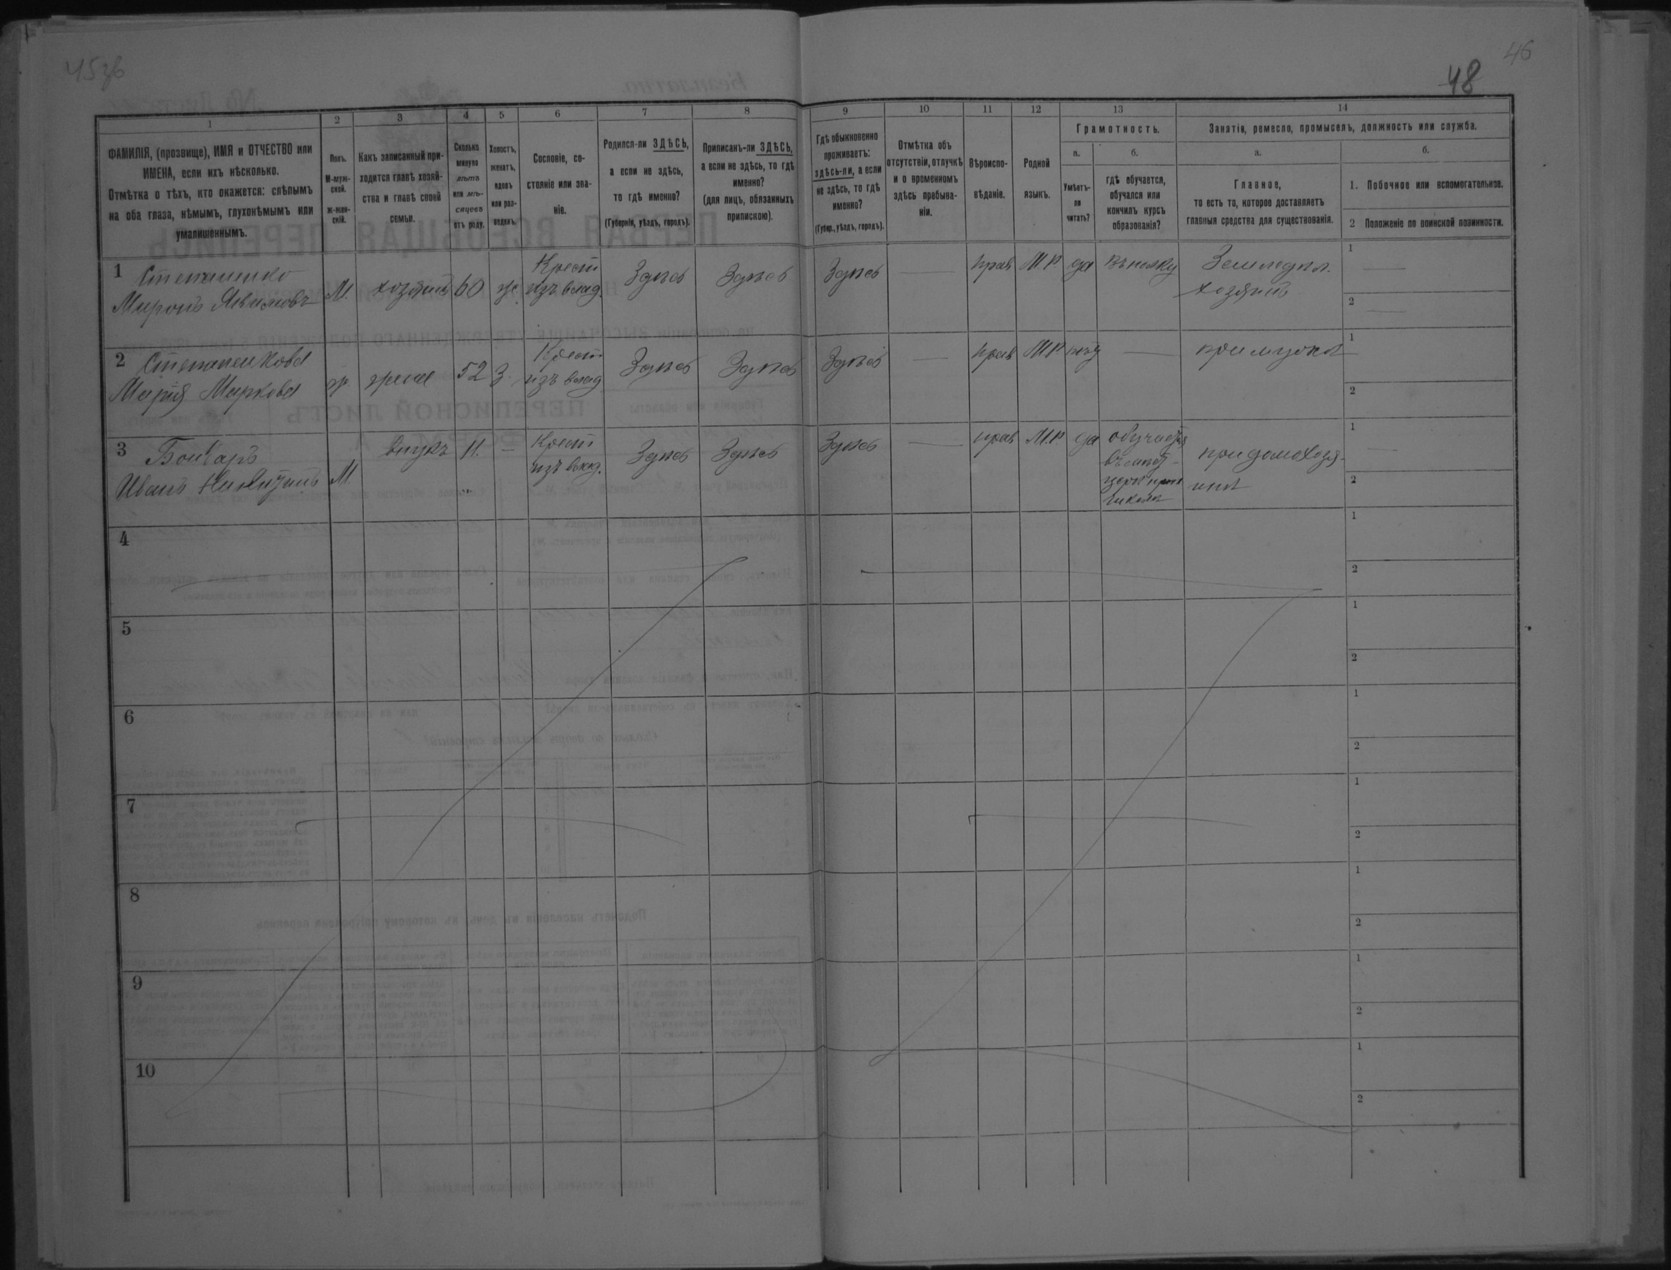 45 зв
46
48
1
2
3
4
5
6
7
8
9
10
11
12
13
14
ФАМИЛІЯ, (прозвище), ИМЯ и ОТЧЕСТВО или
ИМЕНА, если ихъ нѣсколько.
Отмѣтка о тѣхъ, кто окажется: слѣпымъ
на оба глаза, нѣмымъ, глухонѣмымъ или
умалишеннымъ.
Полъ.
М-муж-
ской.
Ж-жен-
скій.
Какъ записанный при-
ходится главѣ хозяй-
ства и главѣ своей
семьи.
Сколько
минуло
лѣтъ
или мѣ-
сяцевъ
отъ роду.
Холостъ,
женатъ,
вдовъ
или раз-
веденъ.
Сословіе, со-
стояніе или зва-
ніе.
Родился-ли ЗДѢСЬ,
а если не здѣсь,
то гдѣ именно?
(Губернія, уѣздъ, городъ).
Приписанъ-ли ЗДѢСЬ,
а если не здѣсь, то гдѣ
именно?
(для лицъ, обязанныхъ
припискою).
Гдѣ обыкновенно
проживаетъ:
здѣсь-ли, а если
не здѣсь, то гдѣ
именно?
(Губер., уѣздъ, городъ).
Отмѣтка объ
отсутствіи, отлучкѣ
и о временномъ
здѣсь пребыва-
ніи.
Вѣроиспо-
вѣданіе.
Родной
языкъ.
Грамотность.
а.
Умѣетъ-
ли
читать?
б.
гдѣ обучается,
обучался или
кончилъ курсъ
образованія?
Занятія, ремесло, промыселъ, должность или служба.
а.
Главное,
то есть то, которое доставляетъ
главныя средства для существованія.
б.
1. Побочное или вспомогательное.
2 Положеніе по воинской повинности.
1 Степаненко
Миронъ Якимовъ
М.
хозяинъ
60
ж
Крест
изъ влад.
Здѣсь
Здѣсь
Здѣсь
прав
М.Р
да
Земледѣл.
хозяинъ
1
2
2 Степаненкова
Марія Маркова
ж
жена
52
З
Крест
изъ влад
Здѣсь
Здѣсь
Здѣсь
прав
М.Р
при мужѣ
1
2
3 Бондаръ
Иванъ
М
внукъ
11.
Крест
изъ влад.
Здѣсь
Здѣсь
Здѣсь
прав
М.Р
да
обучается
школѣ
1
2
4
1
2
5
1
2
6
1
2
7
1
2
8
1
2
9
1
2
10
1
2